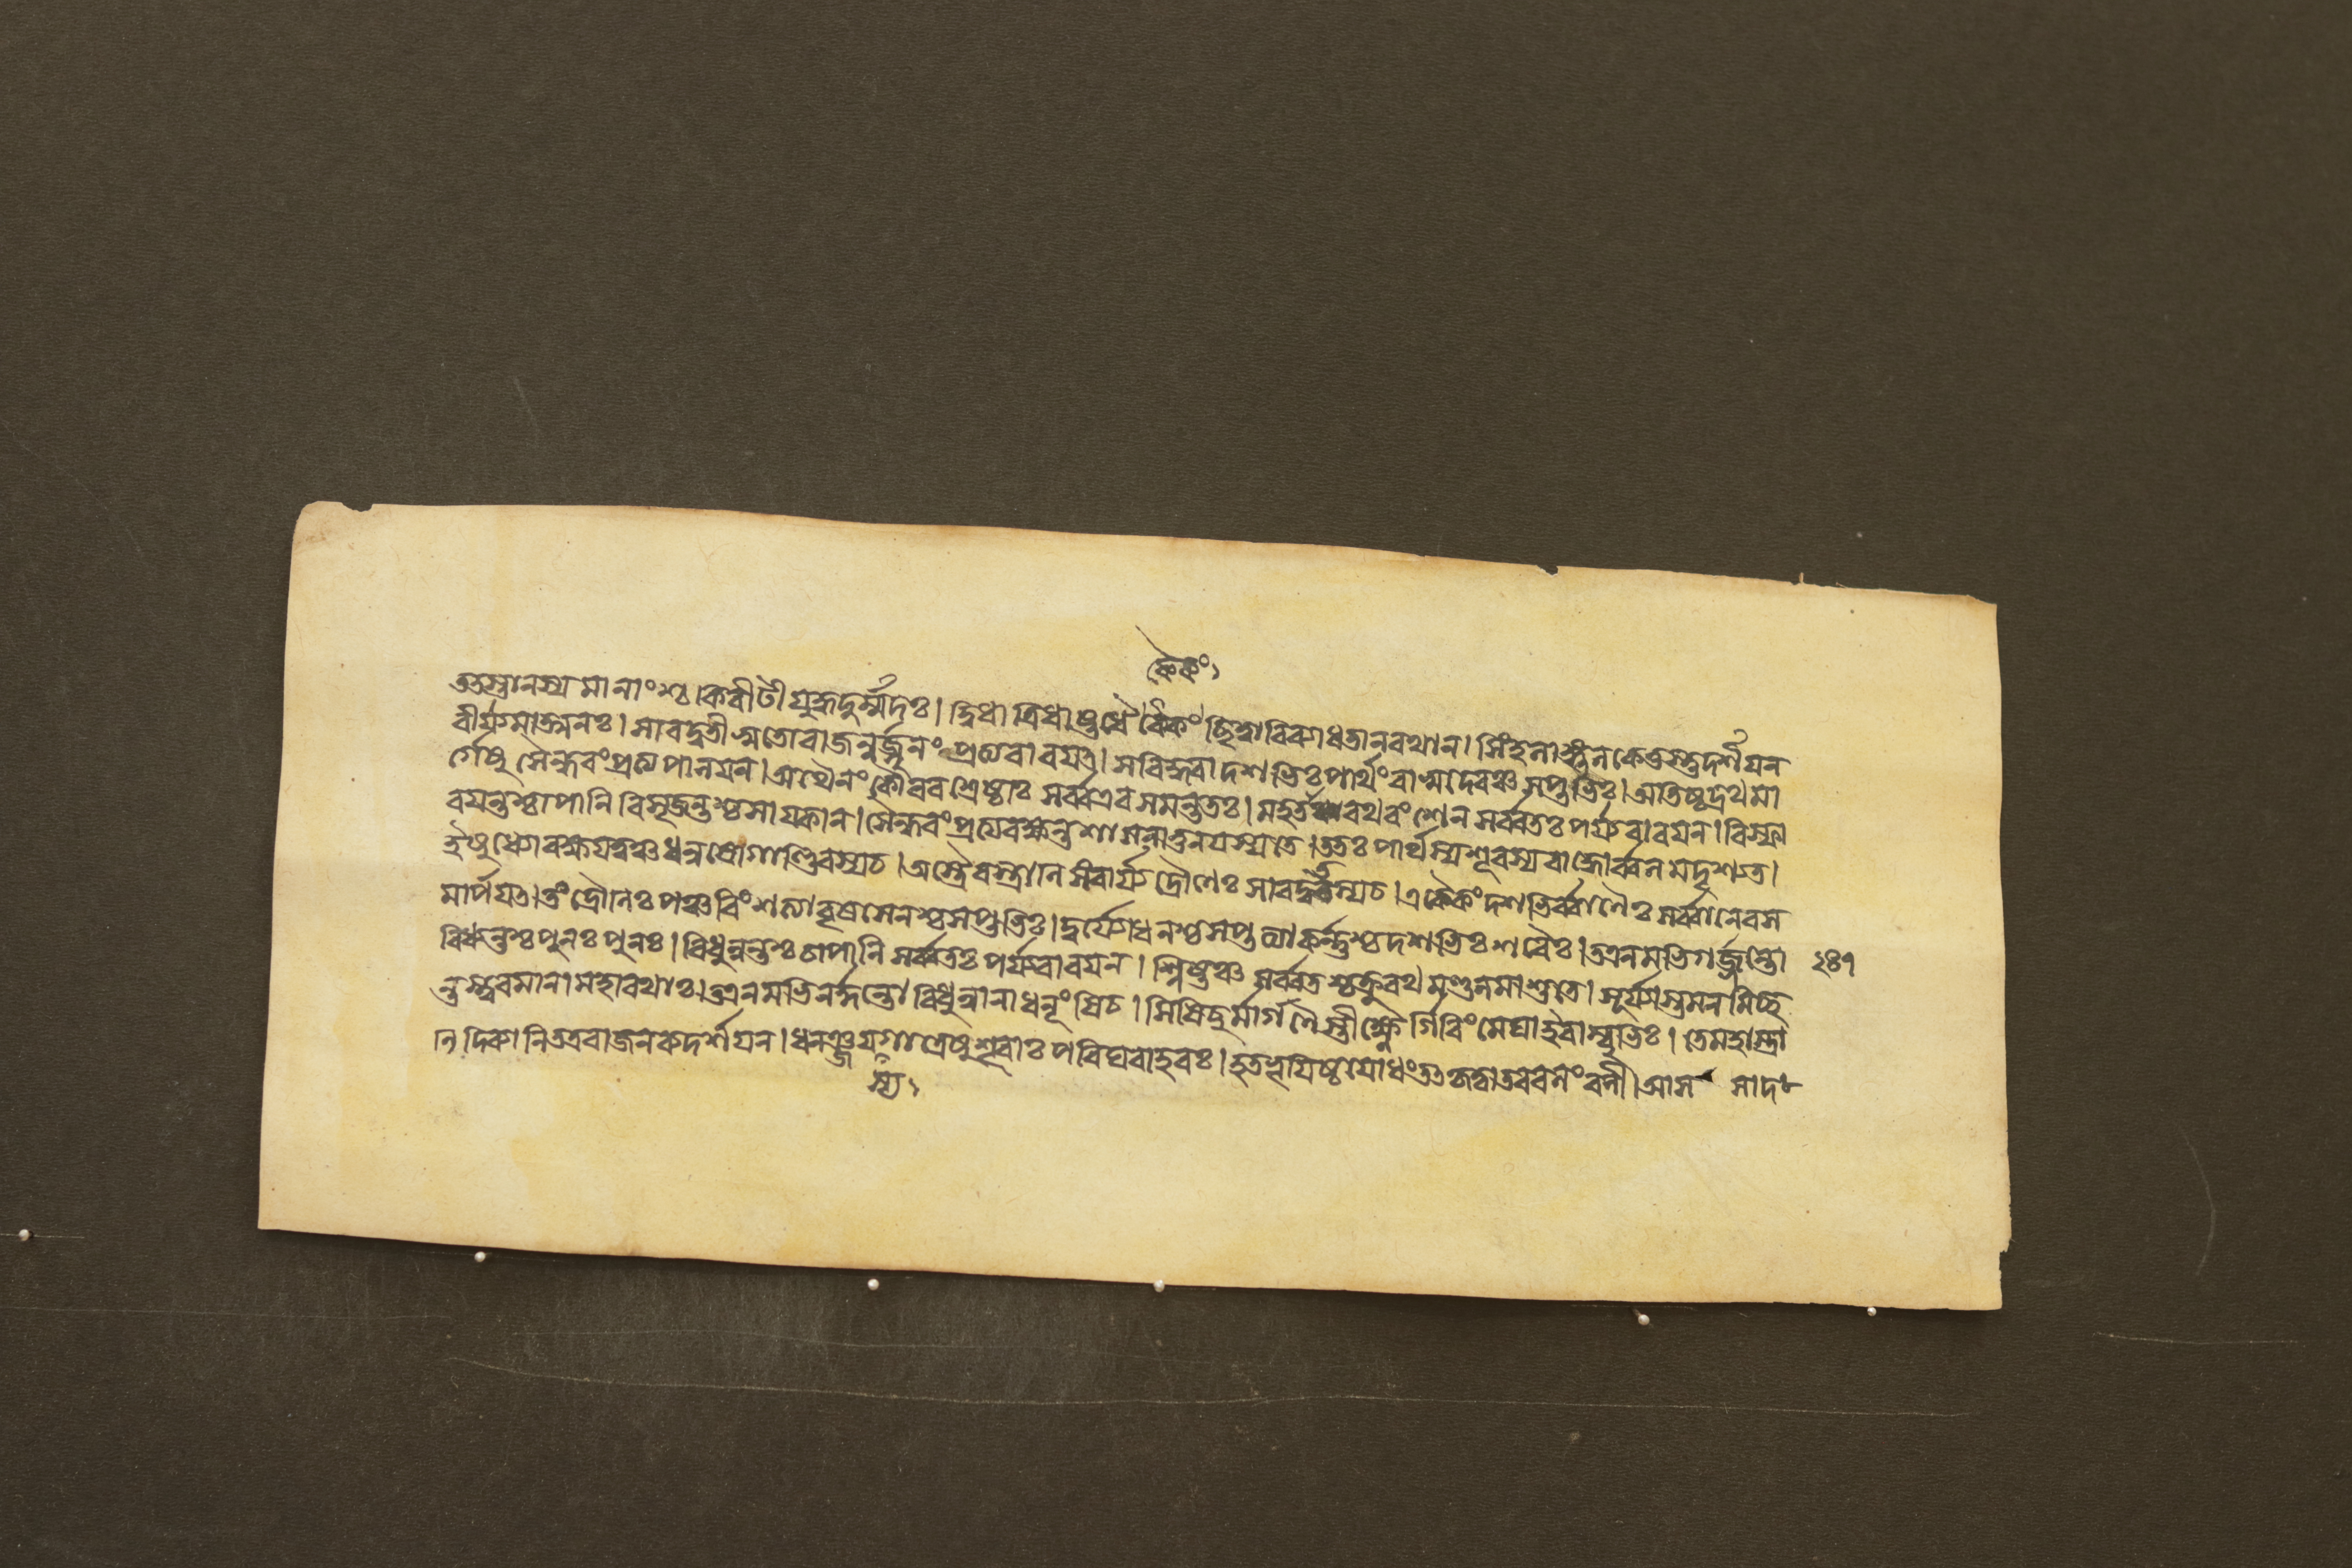 কৈকং৲
ততস্তানস্যমানাংশ্চ।কিৰীটী যুদ্ধদুর্ম্মদঃ। দ্বিধা ত্রিধাষ্টধৈকৈকং ছিত্বা বিব্যাধতানৰথান। সিংহলাঙ্গুলকেতুস্তুদর্শযন
বীর্য্যমাত্মনঃ। সাৰদ্বতীসুতোৰাজন্নর্জ্জুনং প্রত্যবাৰযত। সবিদ্ধ্বাদশভিঃপার্থং বাসুদেবঞ্চ সপ্তভিঃ। অতিষ্ঠদ্ৰথমা
র্গেষু সৈন্ধবংপ্রত্যপালযন। অথৈনং কৌৰবশ্রেষ্ঠাঃ সর্ব্বএব সমন্ততঃ। মহতাৰথবংশেন সর্ব্বতঃ পর্য্যবাৰযন। বিস্ফা
ৰযন্তশ্চাপানি বিসৃজন্তশ্চসাযকান। সৈন্ধবংপ্রত্যৰক্ষন্তশাসনাত্তনযস্যতে। ততঃ পার্থস্যশূৰস্যবাহ্বোর্ব্বলমদৃশ্যত।
ইষুণামক্ষযত্বঞ্চধনুষোগাণ্ডিবস্যচ। অস্ত্রৈৰস্ত্রানি সংবার্য্য দ্রৌণেঃ সাৰদ্বতস্যচ। একৈকংদশভির্ব্বাণৈঃ সর্ব্বানেবস
মার্পযত। তং দ্রৌনিঃ পঞ্চবিংশত্যাবৃষসেনশ্চসপ্তভিঃ। দুর্য্যোধনশ্চসপ্তত্যাকর্ন্নশ্চদশভিঃ শৰৈঃ। তএনমভিগর্জ্জন্তো ২৪৭
বিধ্যন্তশ্চপুনঃ পুনঃ। বিধুন্বন্তশ্চ চাপানি সর্ব্বতঃ পর্য্যবাৰযন। শ্লিষ্টঞ্চ সর্ব্বতশ্চক্রুৰথমণ্ডলমাশুতে। সূর্য্যাস্তমনমিচ্ছ
ন্তস্ত্বৰমানামহাৰথাঃ। তএনমভিনর্দ্দন্তো বিধুন্বানাধনূংষিচ। সিষিচুর্মার্গণৈস্তীক্ষ্ণৈর্গিৰিং মেঘাইবাম্বুভিঃ। তেমহাস্ত্রা
নি দিব্যানিতত্রৰাজনব্যদর্শযন। ধনঞ্জযগাত্রেষুশূৰাঃ পৰিঘবাহবঃ। হতভূযিষ্ঠযোধংততকৃত্বাতববলংবলী। আস সাদ
স্য৲